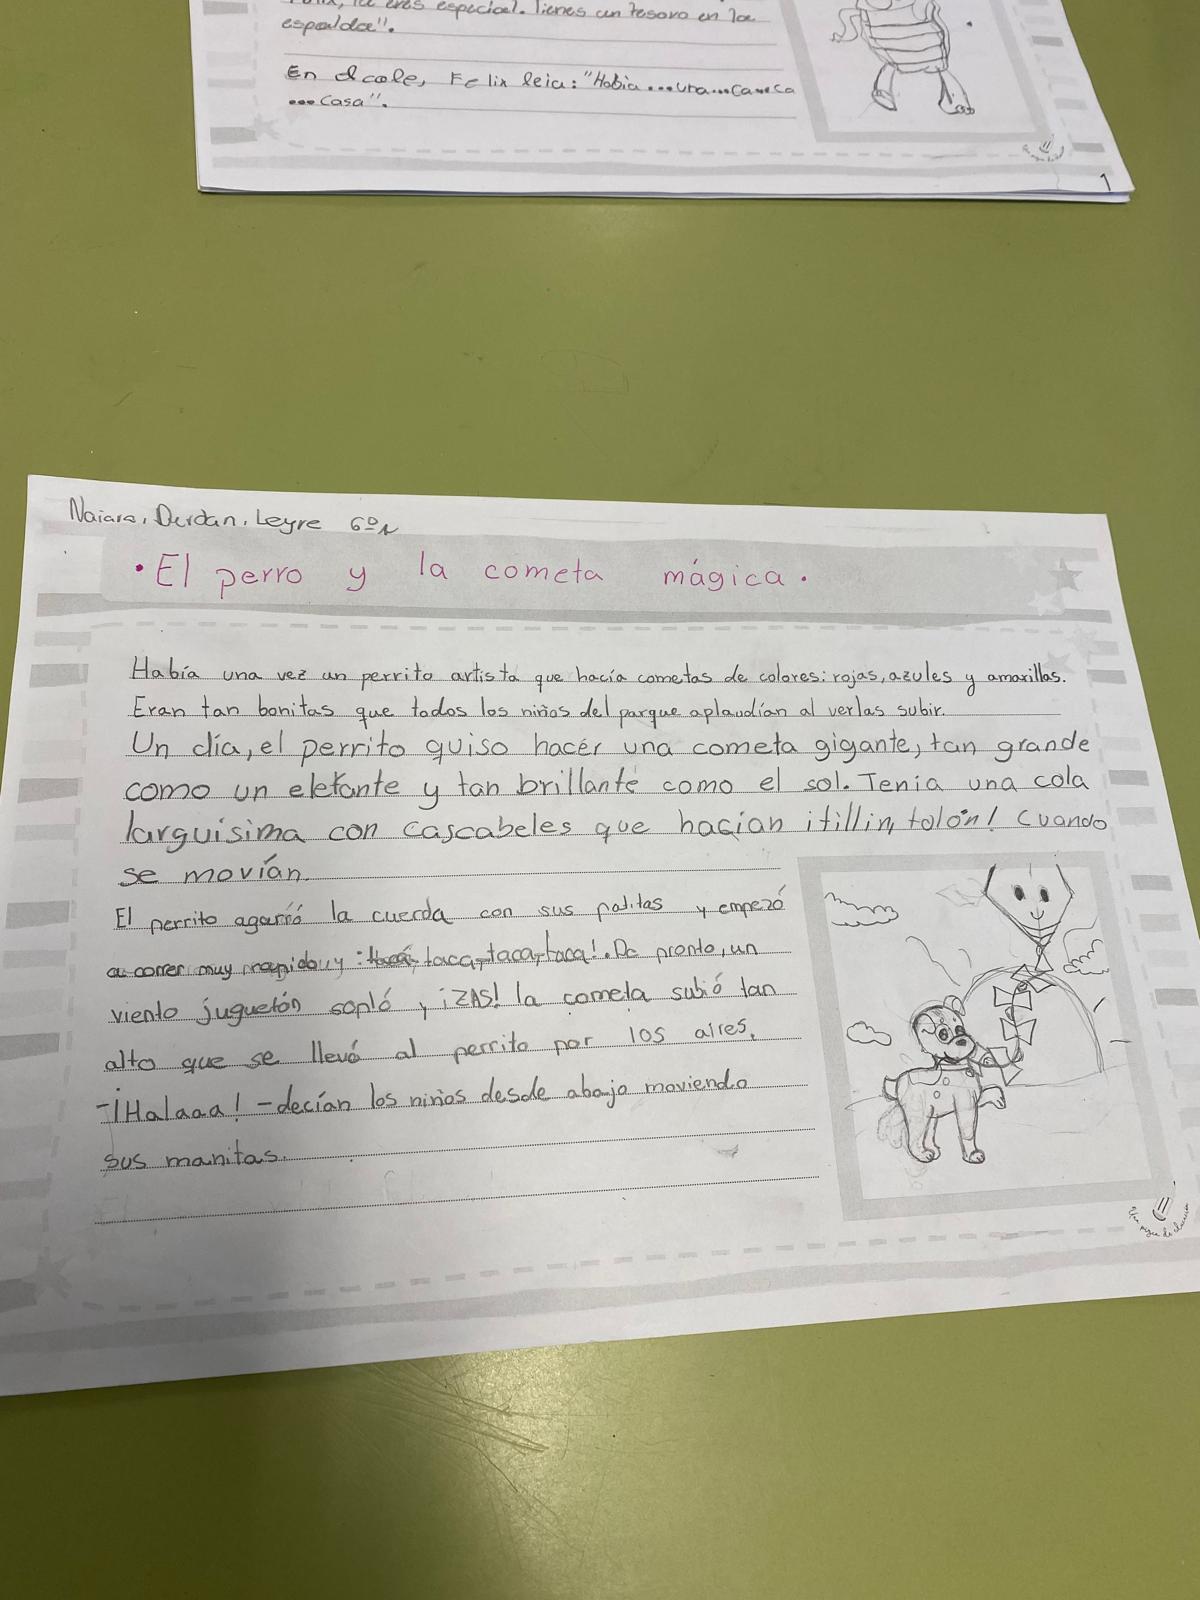 Felix, tu eres especial. Tienes un tesoro en la
espalda".
En el cole, Felix leia: "Habia...una...ca...sa
...casa".
1
Naiara, Durdan, Leyre 6ºA
• El perro y la cometa mágica.
Había una vez un perrito artista que hacía cometas de colores: rojas, azules y amarillas.
Eran tan bonitas que todos los niños del parque aplaudían al verlas subir.
Un día, el perrito quiso hacer una cometa gigante, tan grande
como un elefante y tan brillante como el sol. Tenia una cola
larguísima con cascabeles que hacían ¡tillin, tolón! Cuando
se movían.
El perrito agarró la cuerda con sus patitas y empezó
a correr muy rapido y: taca, taca, taca!. De pronto, un
viento juguetón sopló y ¡ZAS! la cometa subió tan
alto que se llevó al perrito por los aires.
-¡Halaaa! -decían los niños desde abajo moviendo
sus manitas.